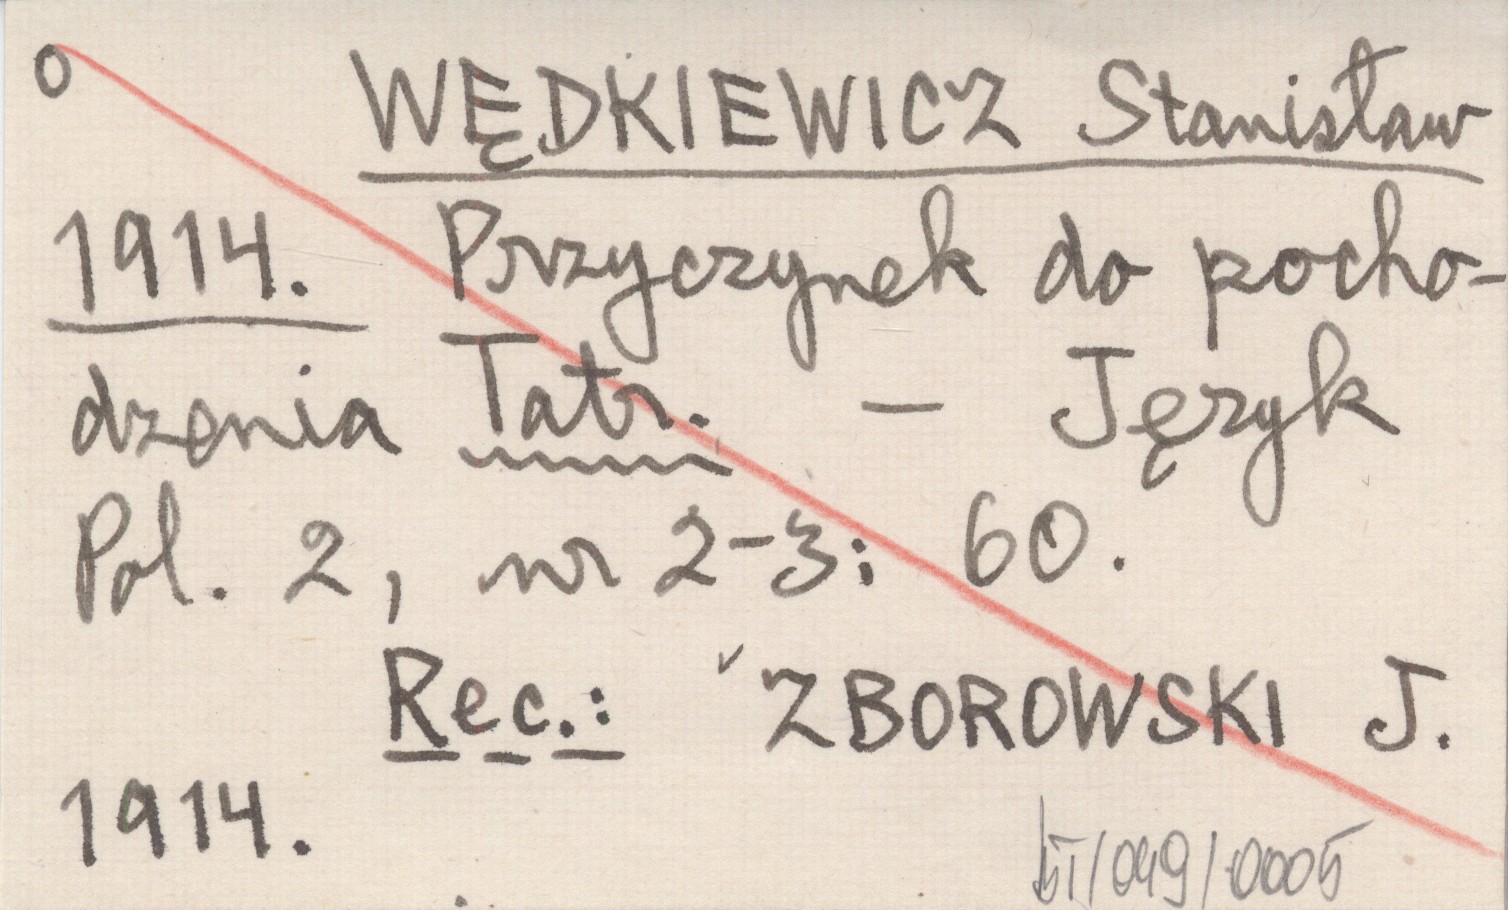 O WĘDKIEWICZ Stanisław
1914. Przyczynek do pocho-
dzenia Tatr. — Język
Pol. 2, nr 2-3: 60.
Rec.: ZBOROWSKI J.
1914.
/049/0005